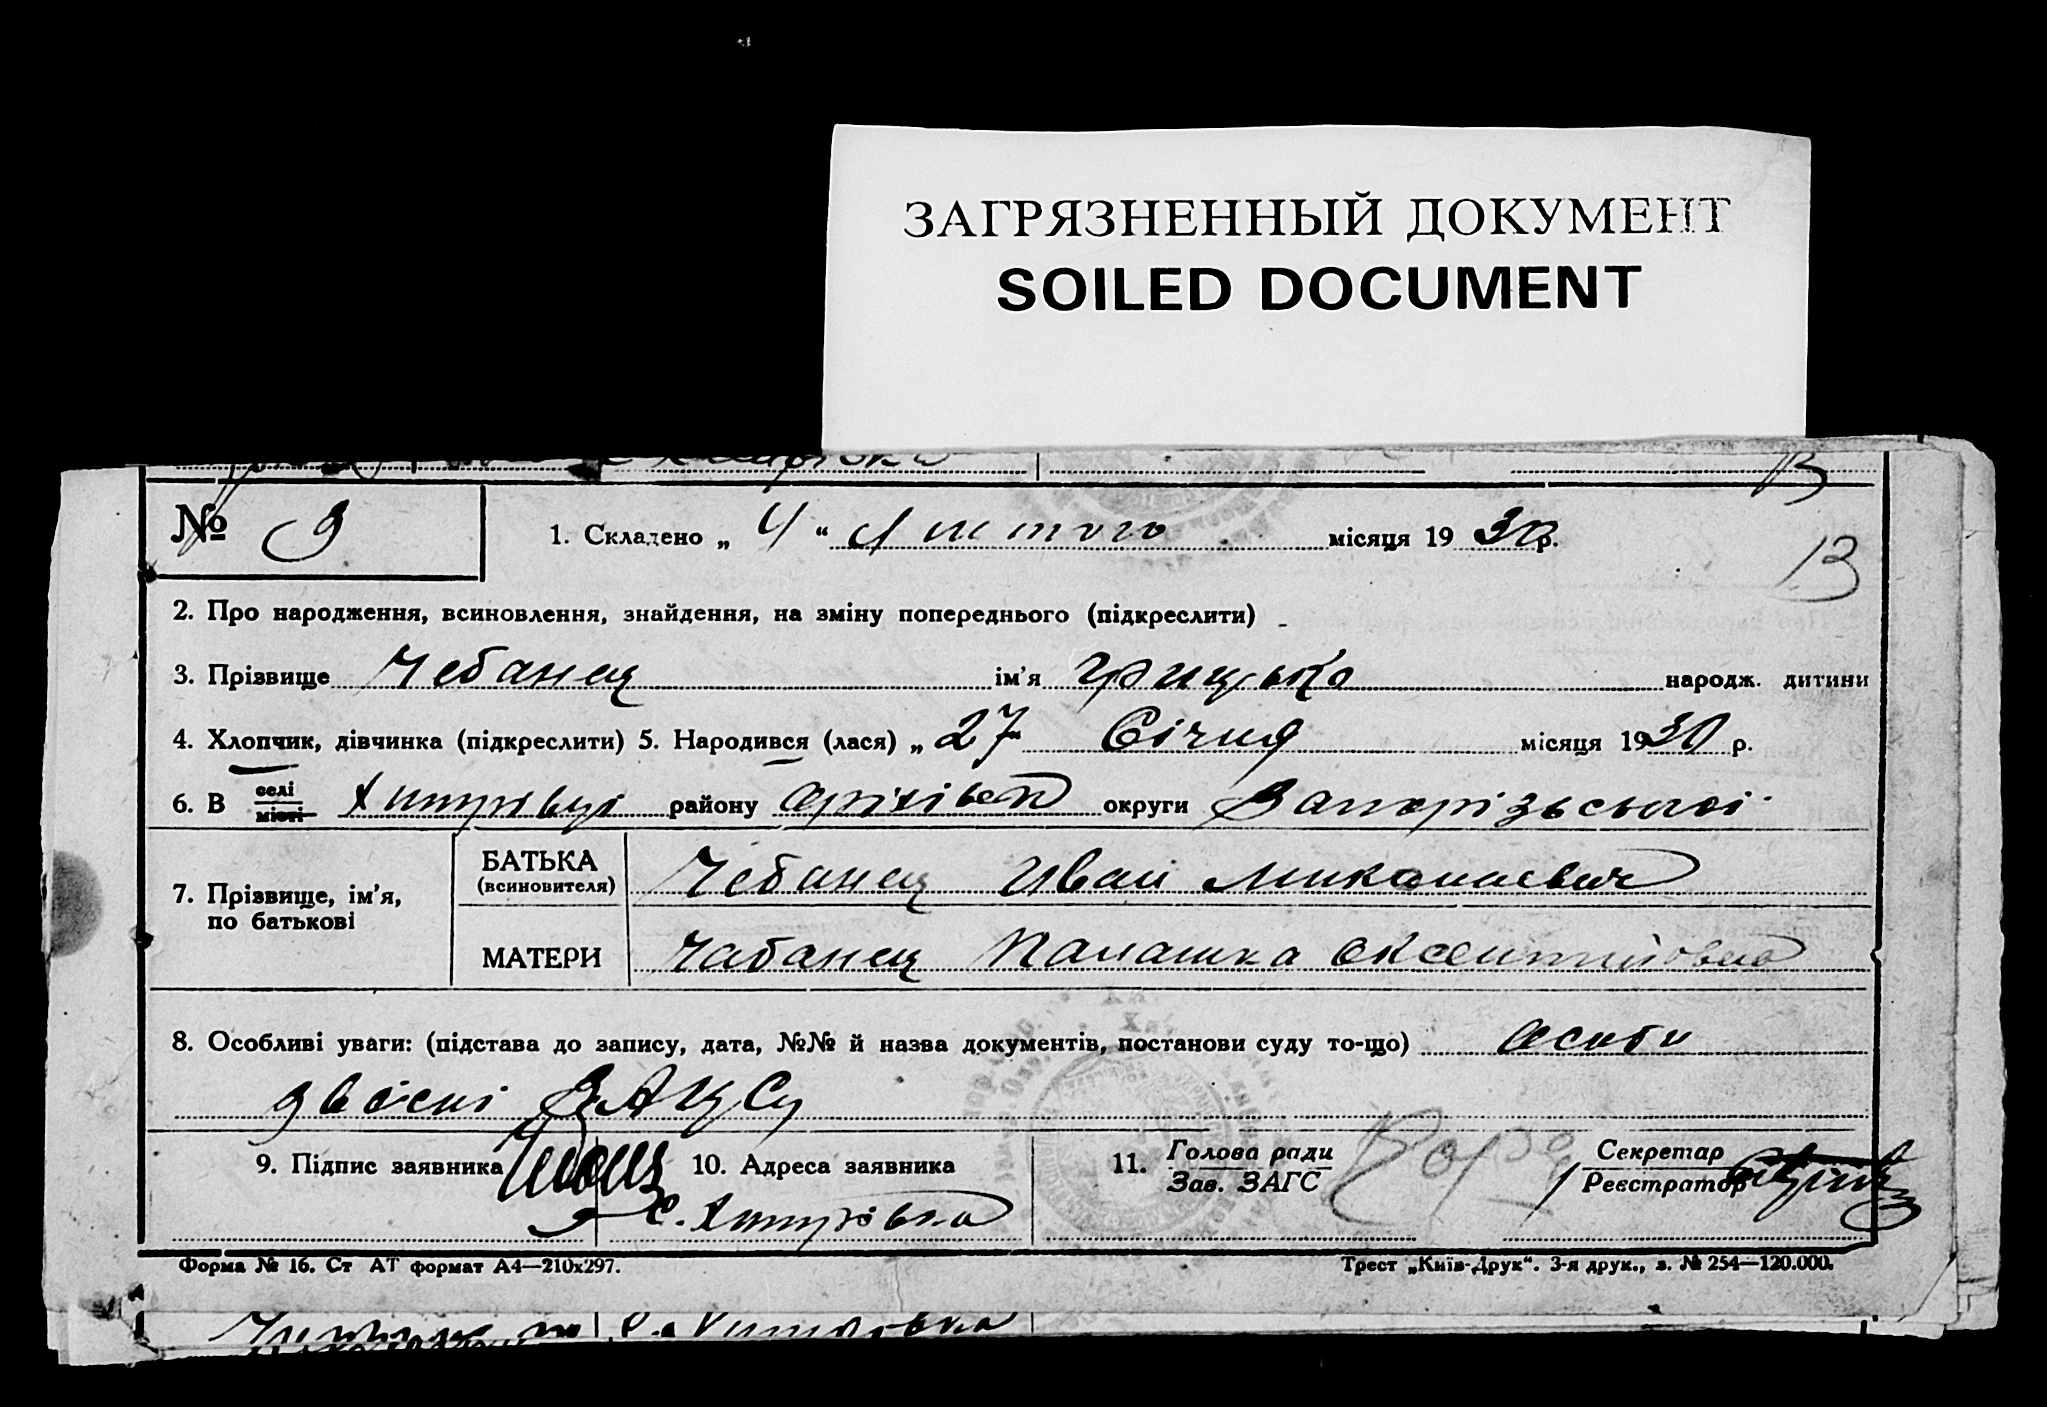 ЗАГРЯЗНЕННЫЙ ДОКУМЕНТ
SOILED DOCUMENT
№ 9
1. Складено „ 4 “ Лютого місяця 19 30 р.
13
2. Про народження, всиновлення, знайдення, на зміну попереднього (підкреслити)
3. Прізвище Чебанец ім'я Грицько народж. дитини
4. Хлопчик, дівчинка (підкреслити) 5. Народився (лася) „ 27 “ Січня місяця 19 30 р.
6. В селі місті Хитрівці району Оріхівск округи Запорізьської
7. Прізвище, ім'я, по батькові
БАТЬКА (всиновителя) Чебанец Иван Миколаевич
МАТЕРИ Чабанец Палашка Оксентиівна
8. Особливі уваги: (підстава до запису, дата, №№ й назва документів, постанови суду то-що) особи
двісні ЗАЦСу
9. Підпис заявника
10. Адреса заявника
с. Хитрівка
11. Голова ради
Зав. ЗАГС
Секретар
Реєстратор
Форма № 16. Ст АТ формат А4—210х297.
Трест „Київ-Друк“. 3-я друк., з. № 254—120.000.